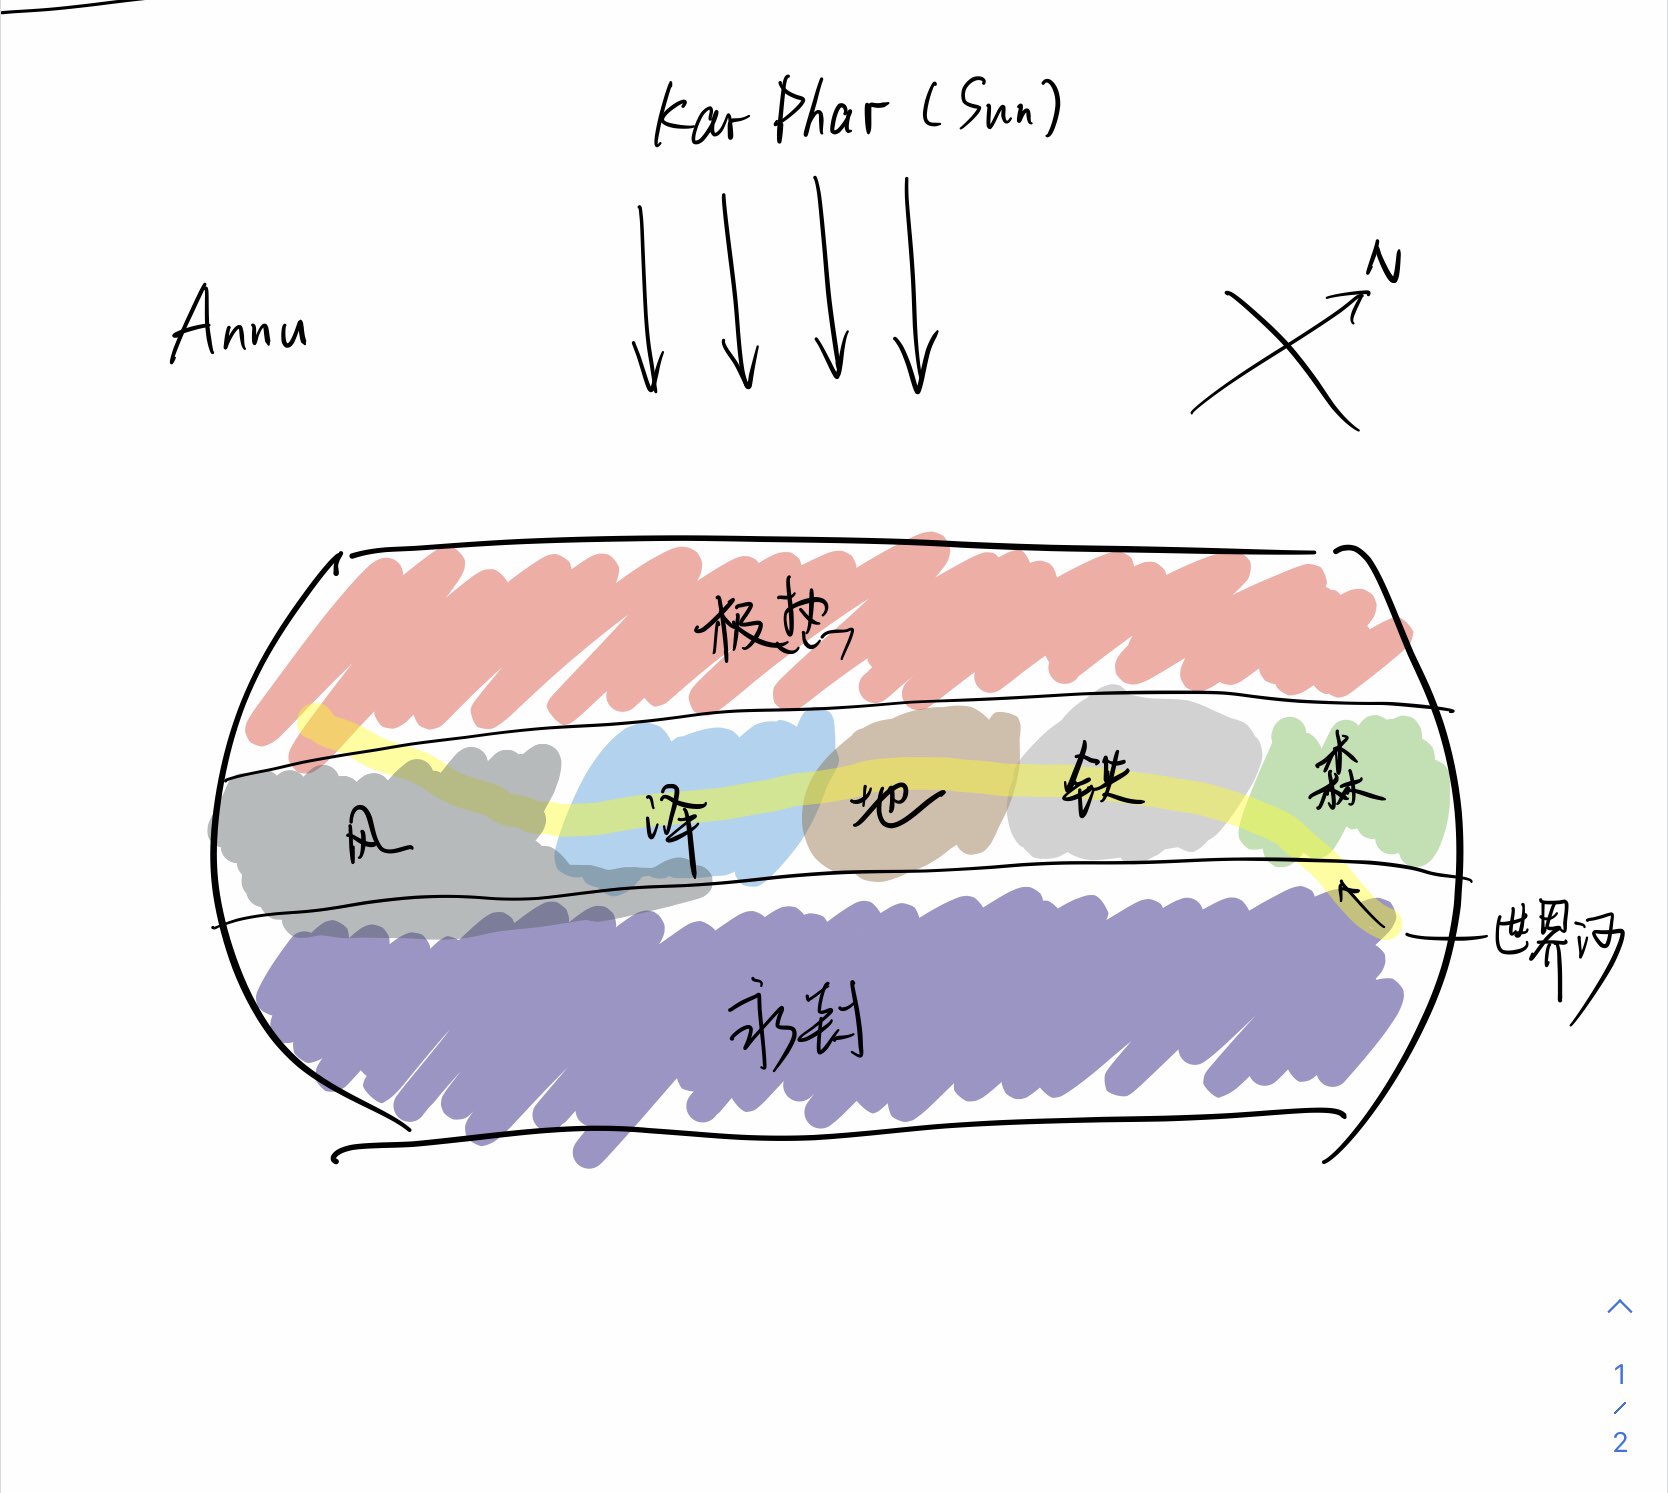 Kar Phar (Sun)
N
Annu
极热
风 泽 地 铁 森
世界河
永封
1
/
2